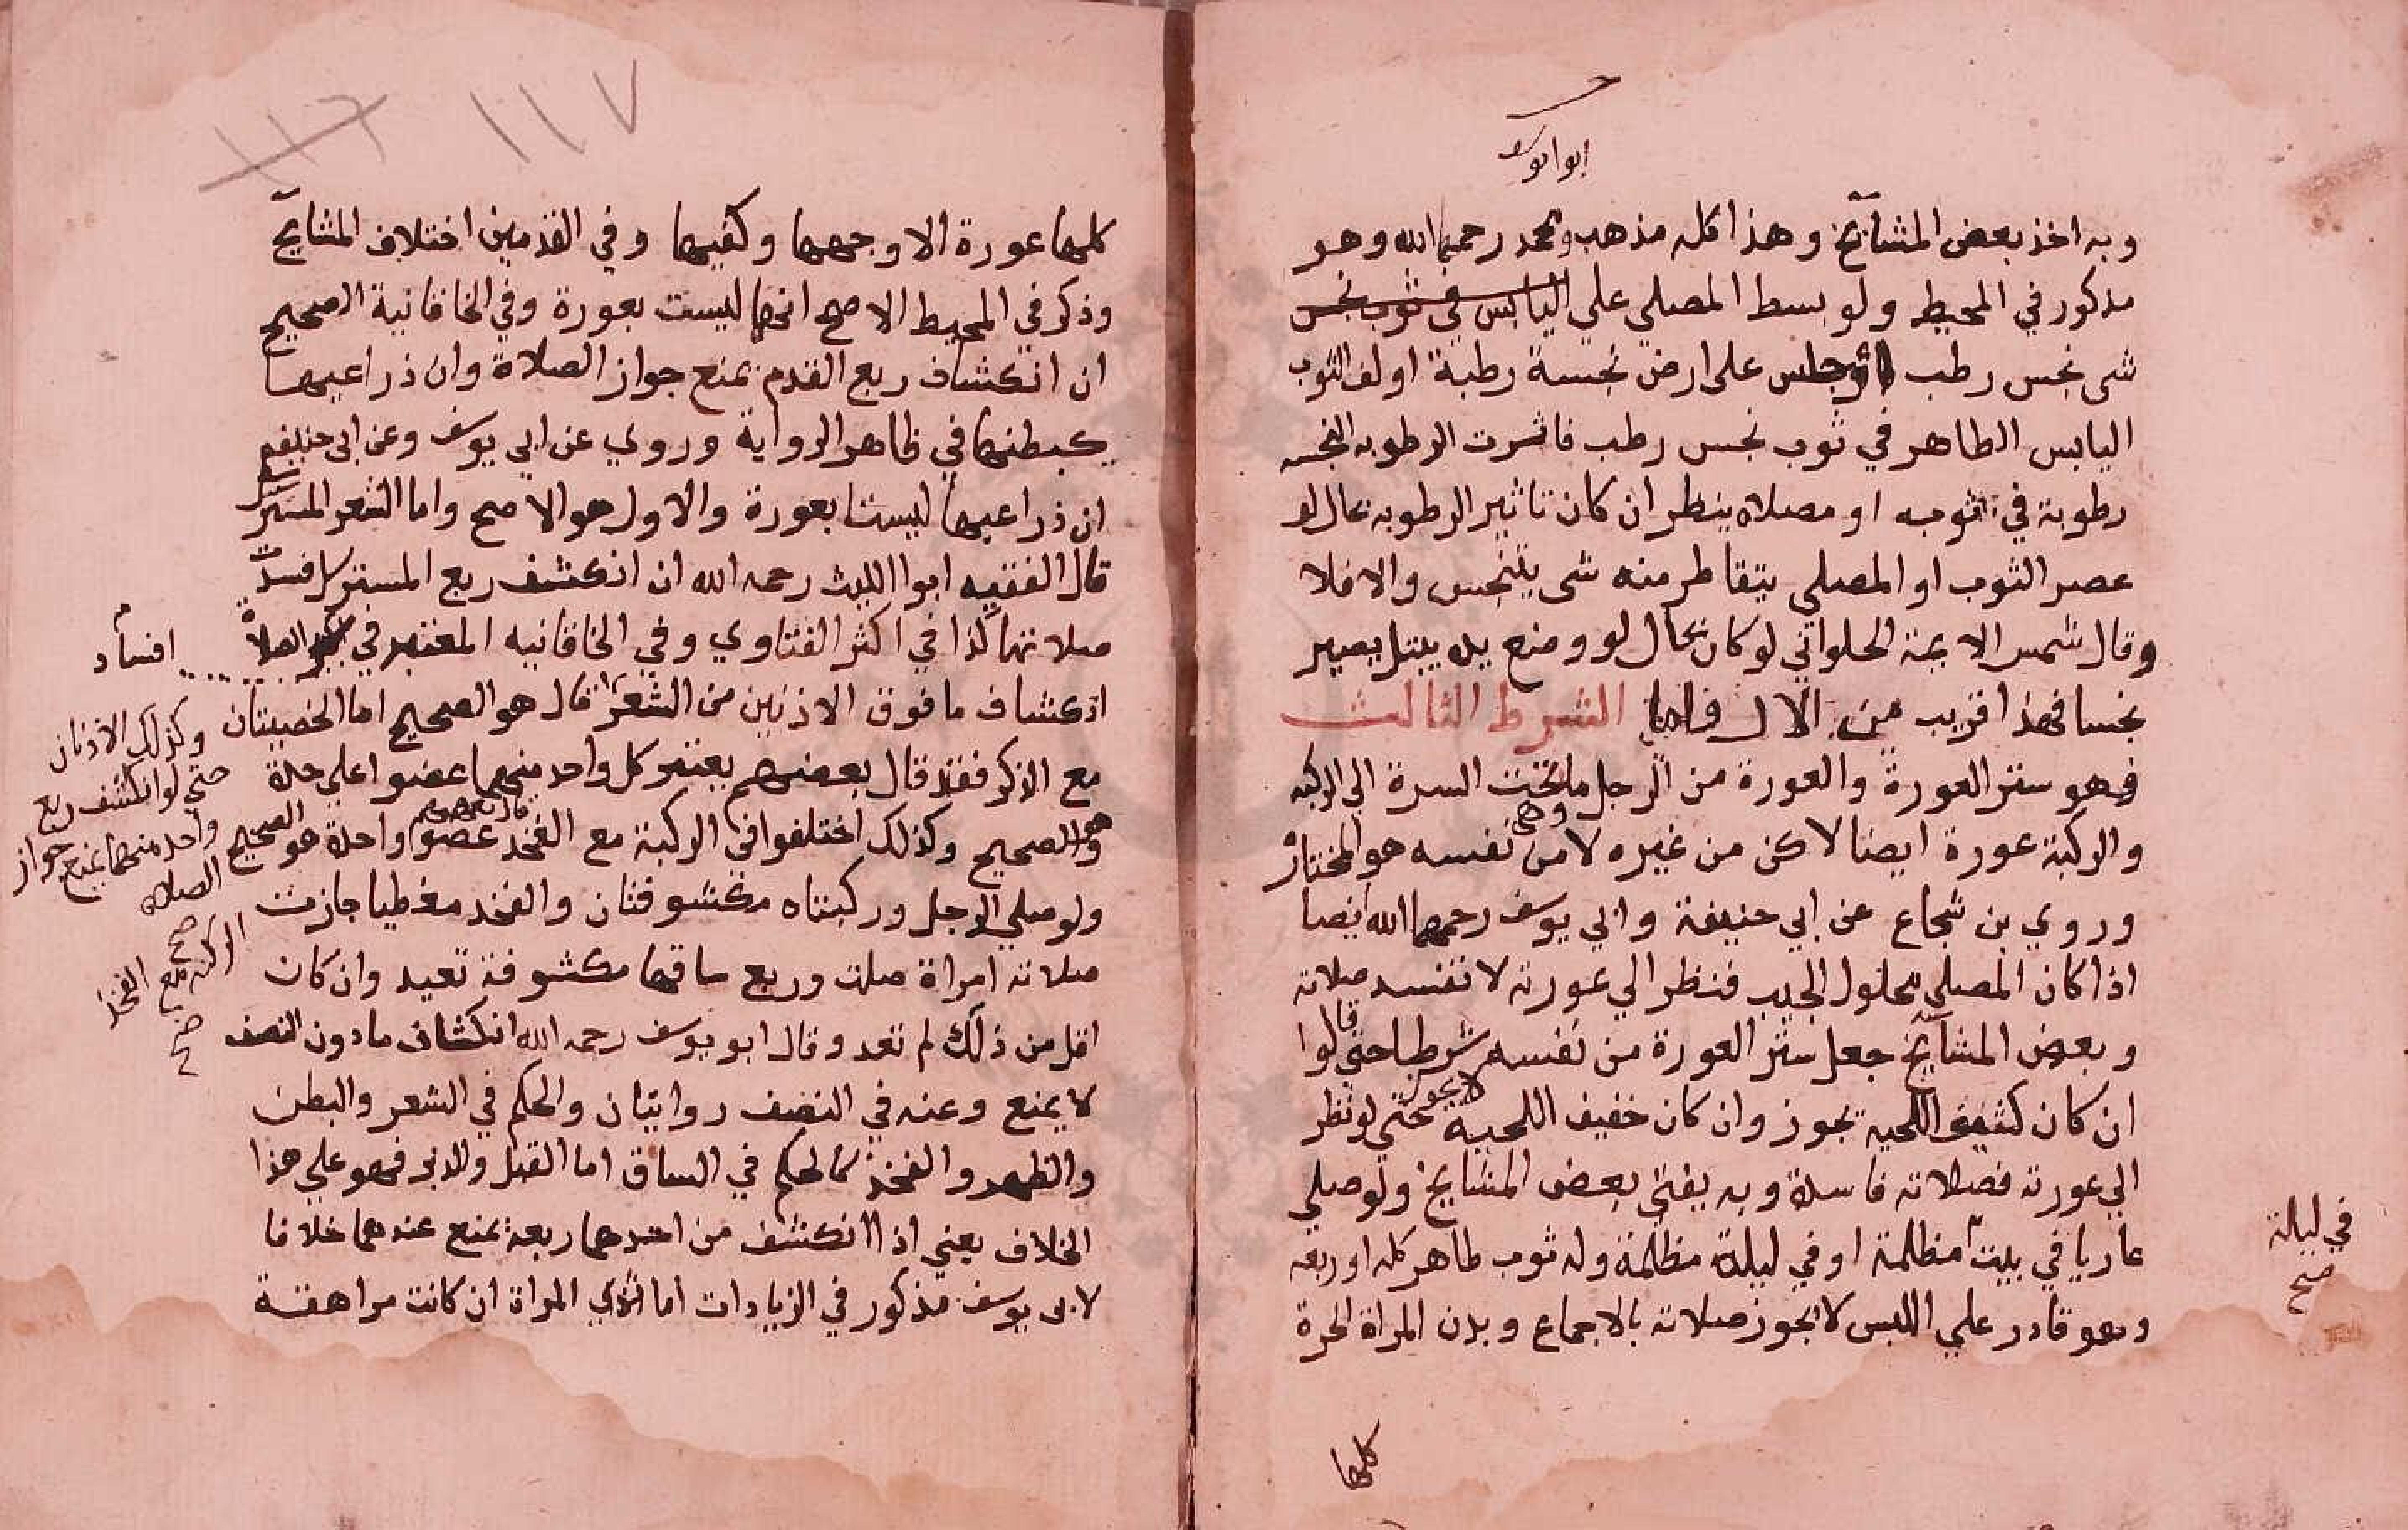 ابو ايوسف
وبه اخذ بعض المشآيخ وهذا كله مذهب ومحمد رحمهما الله وهو
مذكور في المحيط ولو بسط المصلي علي اليابس في ثوب نجس
شى نجس رطب اوجلس على ارض نجسة رطبة او لف الثوب
اليابس الطاهر في ثوب نجس رطب فاثرت الرطوبه النجسه
رطوبة في ثوبه او مصلاه ينظر ان كان تاثير الرطوبه بحال لو
عصر الثوب او المصلي يتقاطر منه شى يتنجس والا فلا
وقال شمس الايمة الحلواني لو كان بحال لو وضع يده يبتل يصير
نجسا فهذا قريب من الال واما الشرط الثالث
فهو ستر العورة والعورة من الرجل ما تحت السرة الى الركبه
والركبة عورة ايضا لاكن من غيره لا من نفسه هو المختار
وهى
وروي بن شجاع عن ابي حنيفة وابي يوسف رحمهما الله ايضا
اذا كان المصلي محلول الجيب فنظر الي عورته لا تفسد صلاته
وبعض المشآيخ جعل ستر العورة من نفسه شرطا حتى قالوا
ان كان كثيف اللحيه تجوز وان كان خفيف اللحية لا يجوز حتي لو نظر
الي عورته فصلاته فاسدة وبه يفتي بعض المشايخ ولو صلي
عاريا في بيت مظلمة او في ليلة مظلمة وله ثوب طاهر كله او ربعه
وهو قادر علي اللبس لا تجوز صلاته بالاجماع وبدن المراة الحرة
في ليالة
صح
كلها
١١٦ ١١٧
كلها عورة الا وجهها وكفيها وفي القدمين اختلاف المشايخ
وذكر في المحيط الاصح انها ليست بعورة وفي الخاقانية الصحيح
ان انكشاف ربع القدم يمنع جواز الصلاة وان ذراعيها
كبطنها في ظاهر الرواية وروي عن ابي يوسف وعن ابى حنيفه
ان ذراعيها ليستا بعورة والاول هو الاصح واما الشعر المسترسل
قال الفقيه ابوا الليث رحمه الله ان انكشف ربع المسترسل فسدت
صلاتها كذا في اكثر الفتاوي وفي الخاقانيه المعتبر في الصلاة
افساد
انكشاف ما فوق الاذنين من الشعر قال هو الصحيح اما الخصيتان
مع الذكر فقد قال بعضهم يعتبر كل واحد منهما عضوا علي حدة
وهو الصحيح وكذلك اختلفوا في الركبة مع الفخد قال بعضهم عضو واحدة هو الصحيح
ولو صلي الرجل وركبتاه مكشوفتان والفخد مغطيا جازت
صلاته امراة صلت وربع ساقها مكشوفة تعيد وان كان
اقل من ذلك لم تعد وقال ابو يوسف رحمه الله انكشاف ما دون النصف
لا يمنع وعنه في النصف روايتان والحكم في الشعر والبطن
والظهر والفخذ كالحكم في الساق اما القبل والدبر فهو علي هذا
الخلاف يعني اذا انكشف من احدهما ربعه يمنع عندهما خلافا
لابى يوسف مذكور في الزيادات اما ثدي المراة ان كانت مراهقة
وكذلك الاذنان
حتى لو انكشف ربع
واحد منهما يمنع جواز
الصلاه
صح
الركبه مع الفخذ
صح